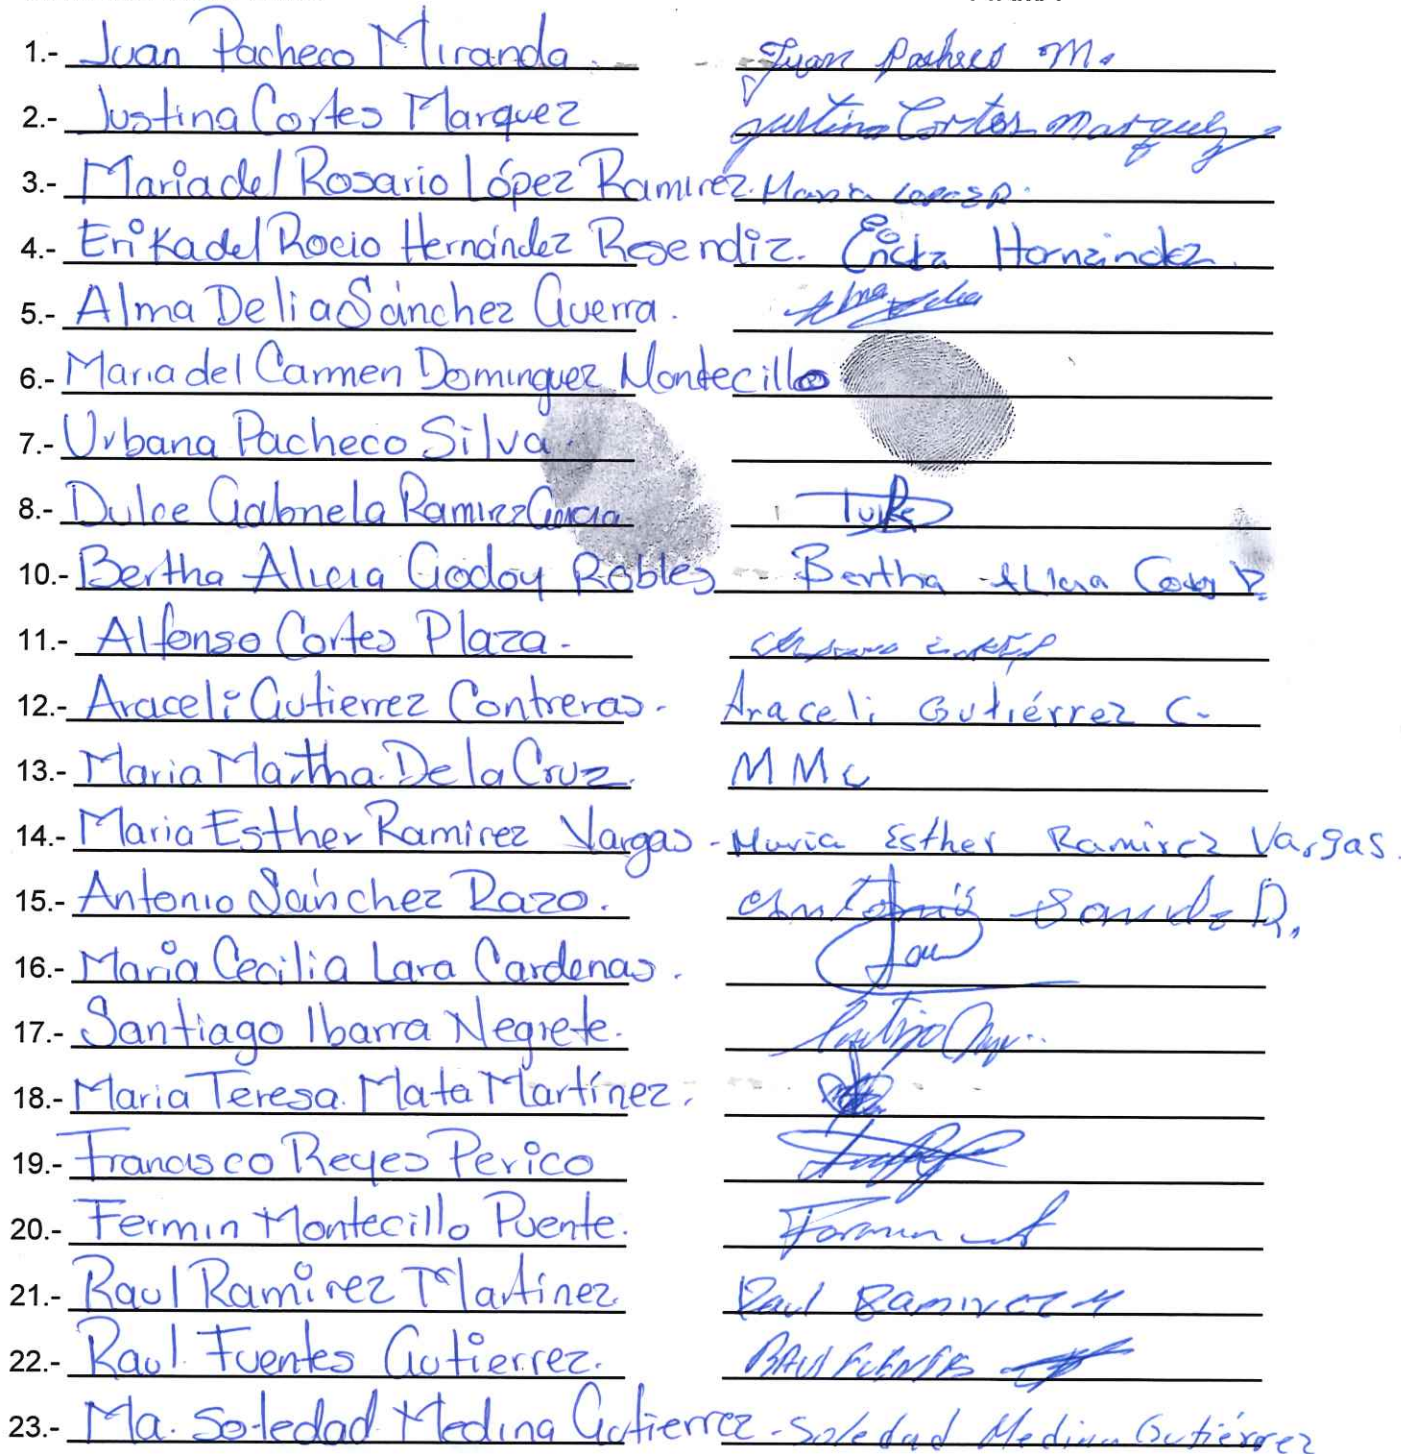 1.- Juan Pacheco Miranda. Juan Pacheco M.
2.- Justina Cortes Marquez Justina Cortes Marquez
3.- Maria del Rosario López Ramirez. Maria Lopez R.
4.- Erika del Rocio Hernández Resendiz. Ericka Hernández.
5.- Alma Delia Sánchez Guerra. Alma Delia
6.- Maria del Carmen Dominguez Montecillo
7.- Urbana Pacheco Silva.
8.- Dulce Gabriela Ramirez Garcia
10.- Bertha Alicia Godoy Robles Bertha Alicia Godoy R.
11.- Alfonso Cortes Plaza.
12.- Araceli Gutierrez Contreras. Araceli Gutiérrez C.
13.- Maria Martha De la Cruz. M M C
14.- Maria Esther Ramirez Vargas - Maria Esther Ramirez Vargas.
15.- Antonio Sánchez Razo. Antonio
16.- Maria Cecilia Lara Cardenas.
17.- Santiago Ibarra Negrete.
18.- Maria Teresa Mata Martínez.
19.- Francisco Reyes Perico
20.- Fermin Montecillo Puente. Fermin
21.- Raul Ramirez Martinez. Raul Ramirez M
22.- Raul Fuentes Gutierrez. Raul Fuentes
23.- Ma. Soledad Medina Gutierrez - Soledad Medina Gutiérrez